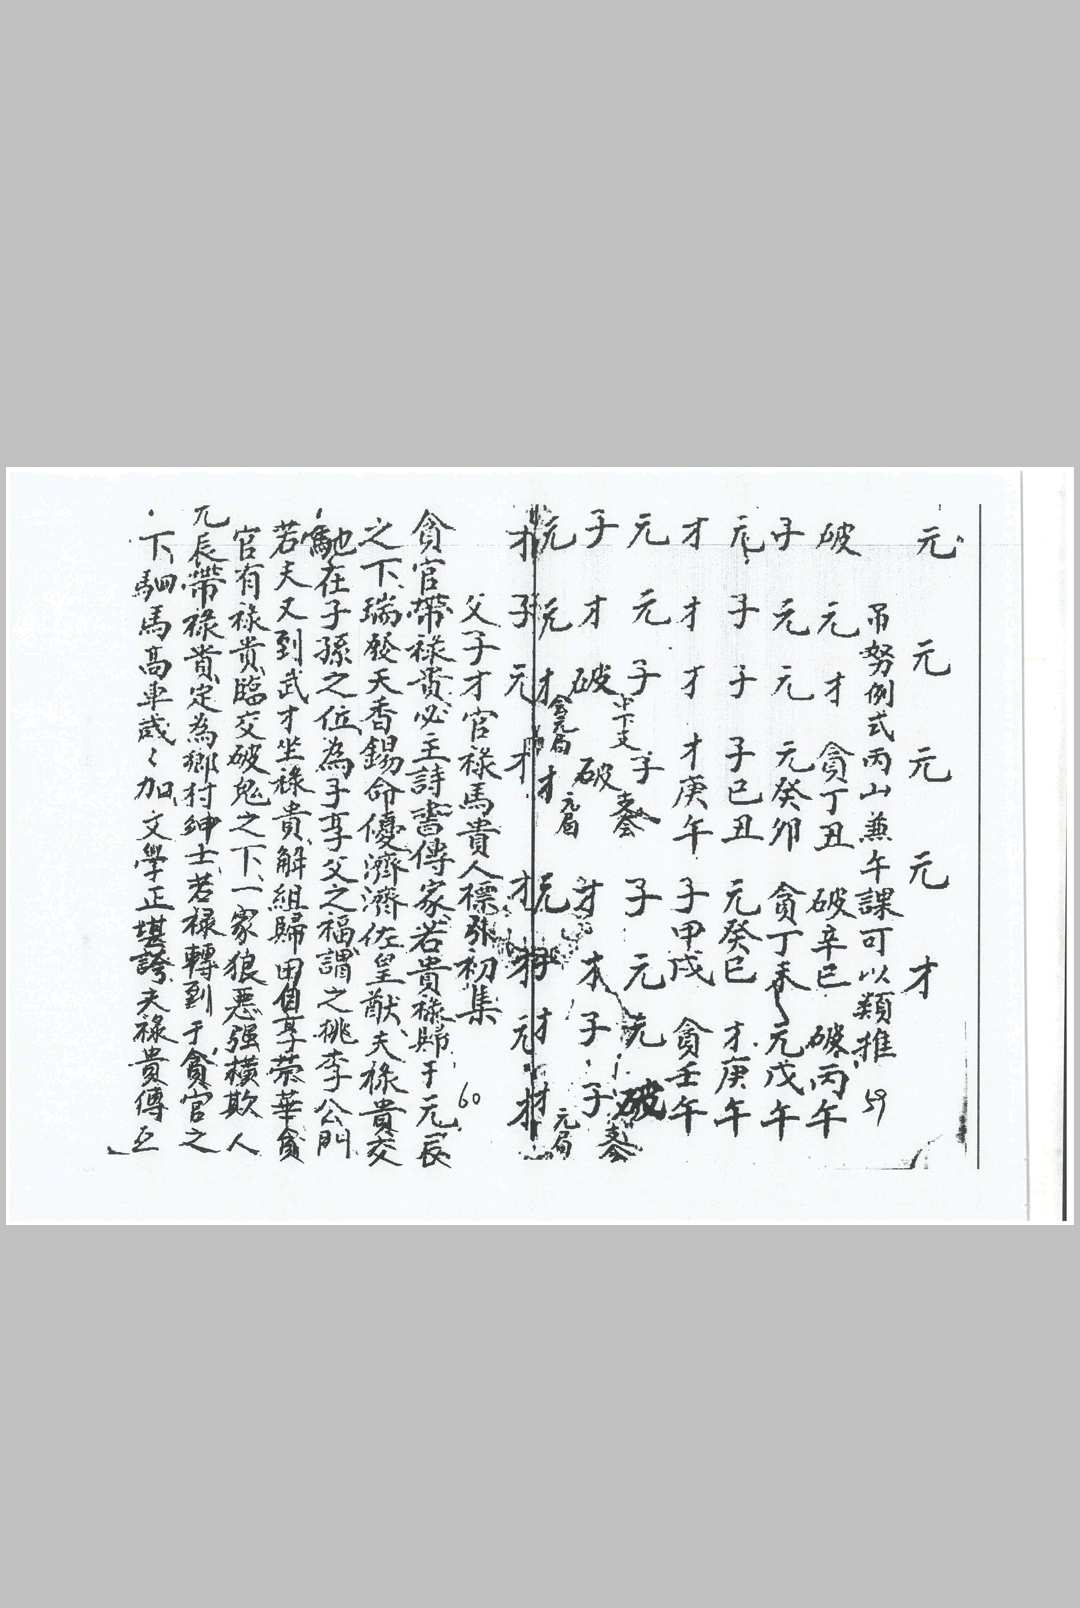 元 元 元 元 才
吊努例式丙山兼午課可以類推 59
破 元 才 貪丁丑 破辛巳 破丙午
子 元 元 元癸卯 貪丁 元戊午
元 子 子 子巳丑 元癸巳 才庚午
才 才 才 才庚午 子甲戌 貪壬午
元 元 子 子 子 元 元 破
子 才 破 破 才 才 子 子
元 元 才 才 元
元局
元局
才 子 元 才 才 元 才
父子才官祿馬貴人標弥初集 60
貪官帶祿貴必主詩書傳家若貴祿歸于元辰
之下瑞發天香錫命優濟濟佐皇猷夫祿貴交
馳在子孫之位為子享父之福謂之桃李公門
若夫又到武才坐祿貴解組歸田自享榮華貪
官有祿貴臨交破鬼之下一家狼惡强橫欺人
元辰帶祿貴定為鄉村紳士若祿轉到于貪官之
下駟馬高車歲々加文學正堪誇夫祿貴傳五